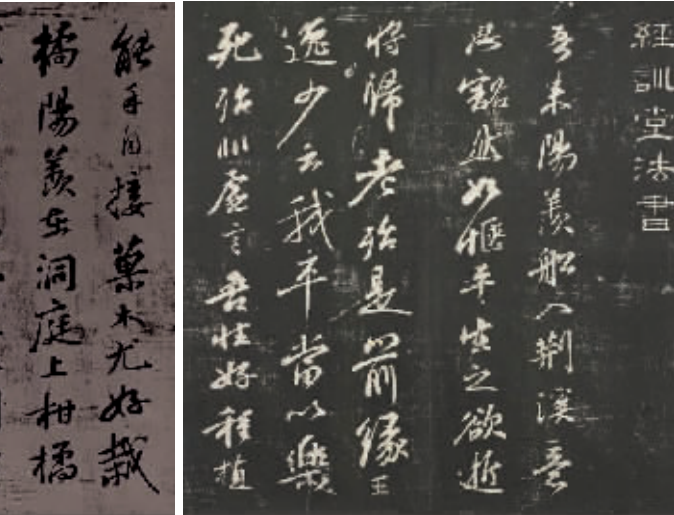 經訓堂法書
吾來陽羨船入荊溪意
思豁然如愜平生之欲逝
將歸老殆是前緣王
逸少云我卒當以樂
死殆非虛言吾性好種植
能手自接菓木尤好栽
橘陽羨在洞庭上柑橘